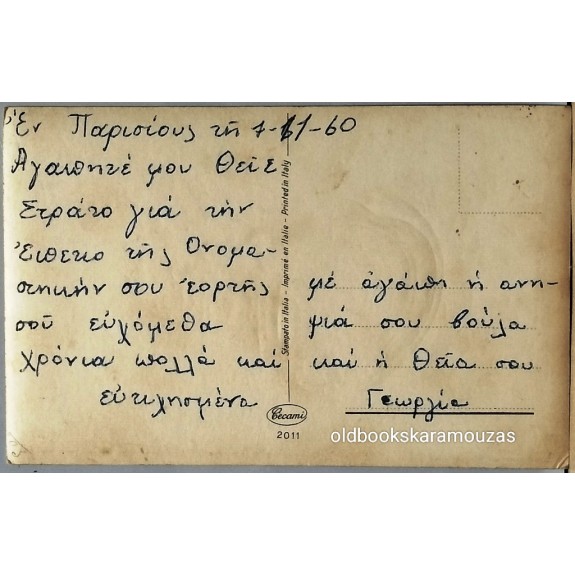 Ἐν Παρισίους τῆ 7-11-60
Αγαπητέ μου Θεῖε
Στράτο γιά τήν
ἐπετιο τῆς Ονομα-
στηκήν σου ἑορτῆς
σοῦ εὐχόμεθα
χρόνια πολλά καί
εὐτιχησμένα
μέ ἀγάπη ἡ ανη-
ψιά σου βούλα
καί ἡ Θεῖα σου
Γεωργία
Stampato in Italia - Imprimé en Italie - Printed in Italy
Cecami
2011
oldbookskaramouzas